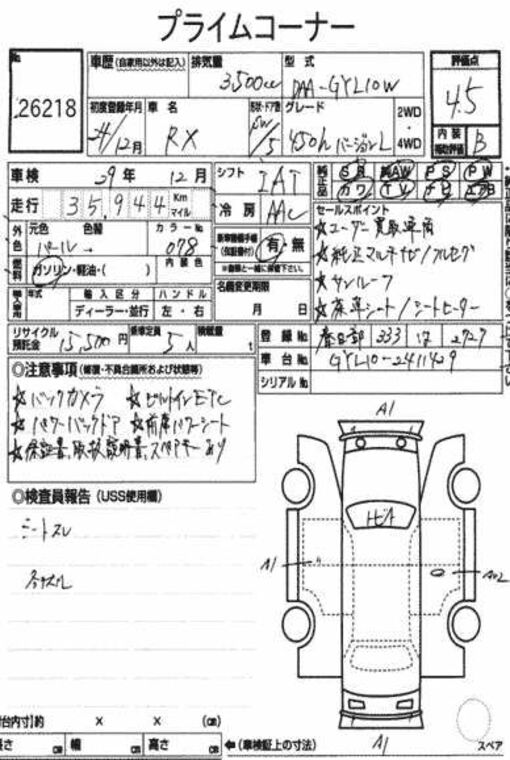 プライムコーナー
No 26218
車歴 (自家用以外は記入) 排気量 3,500cc 型式 DAA-GYL10W
評価点 4.5
初度登録年月 24/12月 車名 RX 形状・ドア数 SW/5 グレード 450h バージョンL 2WD・4WD
内装補助評価 B
車検 29年 12月
シフト IAT
純正品 SR 純AW PS PW
カワ TV ナビ エアB
走行 35,944 Km マイル
冷房 AAC
セールスポイント
☆ユーザー買取車両
外色 元色 パール 色替 カラーNo 078
新車時保証書(保証書付) 有・無
☆純正マルチナビ/フルセグ
燃料 ガソリン・軽油・( ) 内装色
☆サンルーフ
輸入車用 年式 輸入区分 ハンドル
名義変更期限
☆革シート/シートヒーター
ディーラー・並行 左・右
月 日
リサイクル預託金 15,500円 乗車定員 5人 積載量 t
登録No 春日部 333 2727
車台No GYL10-2411429
シリアルNo
◎注意事項 (修復・不具合箇所および状態等)
☆バックカメラ ☆ビルトインETC
☆パワーバックドア ☆前席パワーシート
☆保証書、取扱説明書、スペアキーあり
◎検査員報告 (USS使用欄)
シートスレ
A1
ヒA
A1
A1
(台内寸)約 × × (cm)
長さ cm 幅 cm 高さ cm
←(車検証上の寸法) スペア